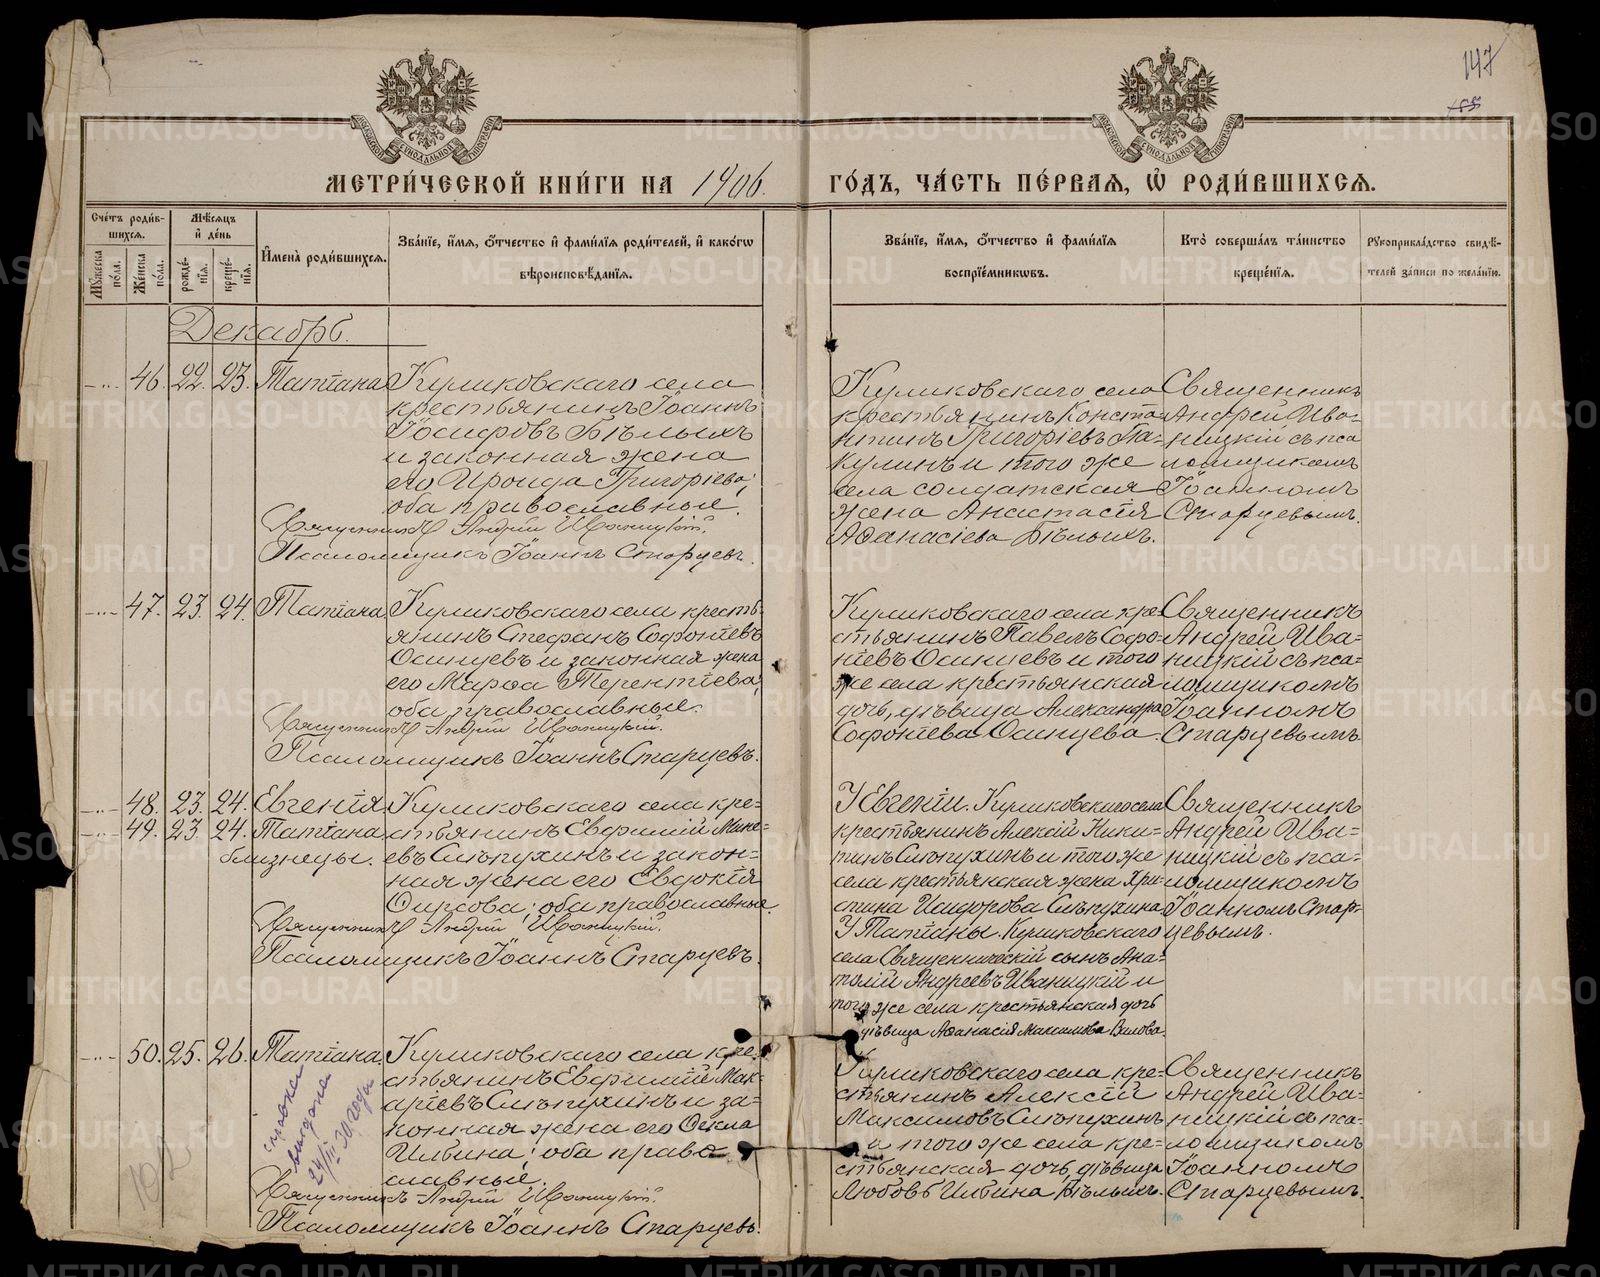 147
МЕТРИ́ЧЕСКОЙ КНИ́ГИ НА 1906.
ГО́ДЪ, ЧА́СТЬ ПЕ́РВАЯ, Ѡ҆ РОДИ́ВШИХСЯ.
Сче́тъ роди́в-
шихся.
Му́жеска по́ла.
Же́нска по́ла.
Мѣ́сяцъ
и҆ де́нь
рожде́-
нїя.
креще́-
нїя.
И҆мена̀ роди́вшихся.
Зва́нїе, и҆́мя, ѻ҆́тчество и҆ фами́лїя роди́телей, и҆ како́гѡ
вѣроисповѣ́данїя.
Зва́нїе, и҆́мя, ѻ҆́тчество и҆ фами́лїя
воспрїе́мникѡвъ.
Кто̀ соверша́лъ та́инство
креще́нїя.
Рꙋкоприкла́дство свидѣ́-
телей за́писи по жела́нїю.
Декабрь.
46. 22. 23. Татiана
Куликовскаго села
крестьянинъ Iоаннъ
Iосифовъ Бѣлыхъ
и законная жена
его Ироида Григорiева;
оба православные.
Священникъ Андрей Иваницкiй.
Псаломщикъ Iоаннъ Старцевъ.
Куликовскаго села
крестьянинъ Конста-
нтинъ Григорiевъ Па-
кулинъ и того же
села солдатская
жена Анастасiя
Аѳанасiева Бѣлыхъ.
Священникъ
Андрей Ива-
ницкiй съ пса
ломщикомъ
Iоанномъ
Старцевымъ.
47. 23. 24. Татiана.
Куликовскаго села кресть-
янинъ Стефанъ Софонiевъ
Осинцевъ и законная жена
его Марѳа Терентiева;
оба православные.
Священникъ Андрей Иваницкiй.
Псаломщикъ Iоаннъ Старцевъ.
Куликовскаго села кре-
стьянинъ Павелъ Софо-
нiевъ Осинцевъ и того
же села крестьянская
дочь, дѣвица Александра
Софонiева Осинцева.
Священникъ
Андрей Ива-
ницкiй съ пса-
ломщикомъ
Iоанномъ
Старцевымъ.
48. 23. 24. Евгенiя
49. 23 24. Татiана
близнецы.
Куликовскаго села кре-
стьянинъ Евфимiй Мине-
евъ Слѣпухинъ и закон-
ная жена его Евдокiя
Фирсова; оба православные.
Священникъ Андрей Иваницкiй.
Псаломщикъ Iоаннъ Старцевъ.
У Евгенiи. Куликовскаго села
крестьянинъ Алексiй Ники-
тинъ Слѣпухинъ и того же
села крестьянская жена Хри-
стина Исидорова Слѣпухина
У Татiаны. Куликовскаго
села Священническiй сынъ Ана-
толiй Андреевъ Иваницкiй и
того же села крестьянская дочь
дѣвица Аѳанасiя Максимова Вилова.
Священникъ
Андрей Ива-
ницкiй съ пса-
ломщикомъ
Iоанномъ Стар-
цевымъ.
50. 25. 26. Татiана.
справка
выдана
24/III 30 года
Куликовскаго села кре-
стьянинъ Евфимiй Мак-
арiевъ Слѣпухинъ и за-
конная жена его Ѳекла
Ильина; оба право-
славные.
Священникъ Андрей Иваницкiй.
Псаломщикъ Iоаннъ Старцевъ.
Куликовскаго села кре-
стьянинъ Алексiй
Максимовъ Слѣпухинъ
и того же села кре-
стьянская дочь, дѣвица
Любовь Ильина Бѣлыхъ.
Священникъ
Андрей Ива-
ницкiй съ пса-
ломщикомъ
Iоанномъ
Старцевымъ.
METRIKI.GASO-URAL.RU